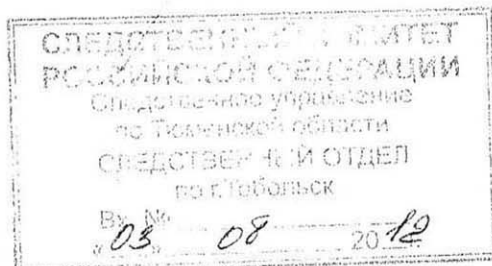 СЛЕДСТВЕННЫЙ КОМИТЕТ
РОССИЙСКОЙ ФЕДЕРАЦИИ
Следственное управление
по Тюменской области
СЛЕДСТВЕННЫЙ ОТДЕЛ
по г.Тобольск
Вх. №
«03» 08 2012